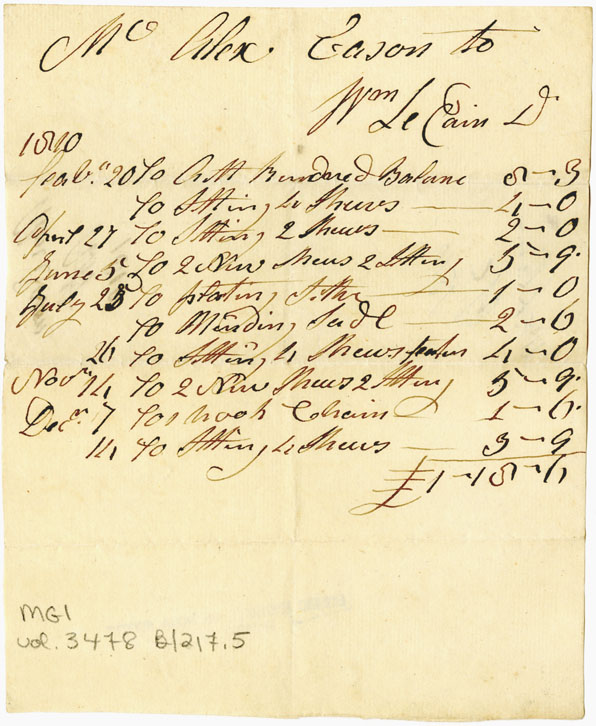 Mr Alex Eason to
Wm Le Cain Dr
1810
Feabry 20 To Acctt Rendred Balance 8 - 3
To Setting 4 Shews 4 - 0
April 27 To Setting 2 Shews 2 - 0
June 5 To 2 New Shews 2 Setting 5 - 9
July 23 To plating Sithe 1 - 0
To Minding Sadl 2 - 6
26 To Setting 4 Shews 4 - 0
Novr 14 To 2 New Shews 2 Setting 5 - 9
Decr 7 To 1 hook Chain 1 - 6
14 To Setting 4 Shews 3 - 9
£1 - 18 - 6
MG1
vol. 3478 B/217.5